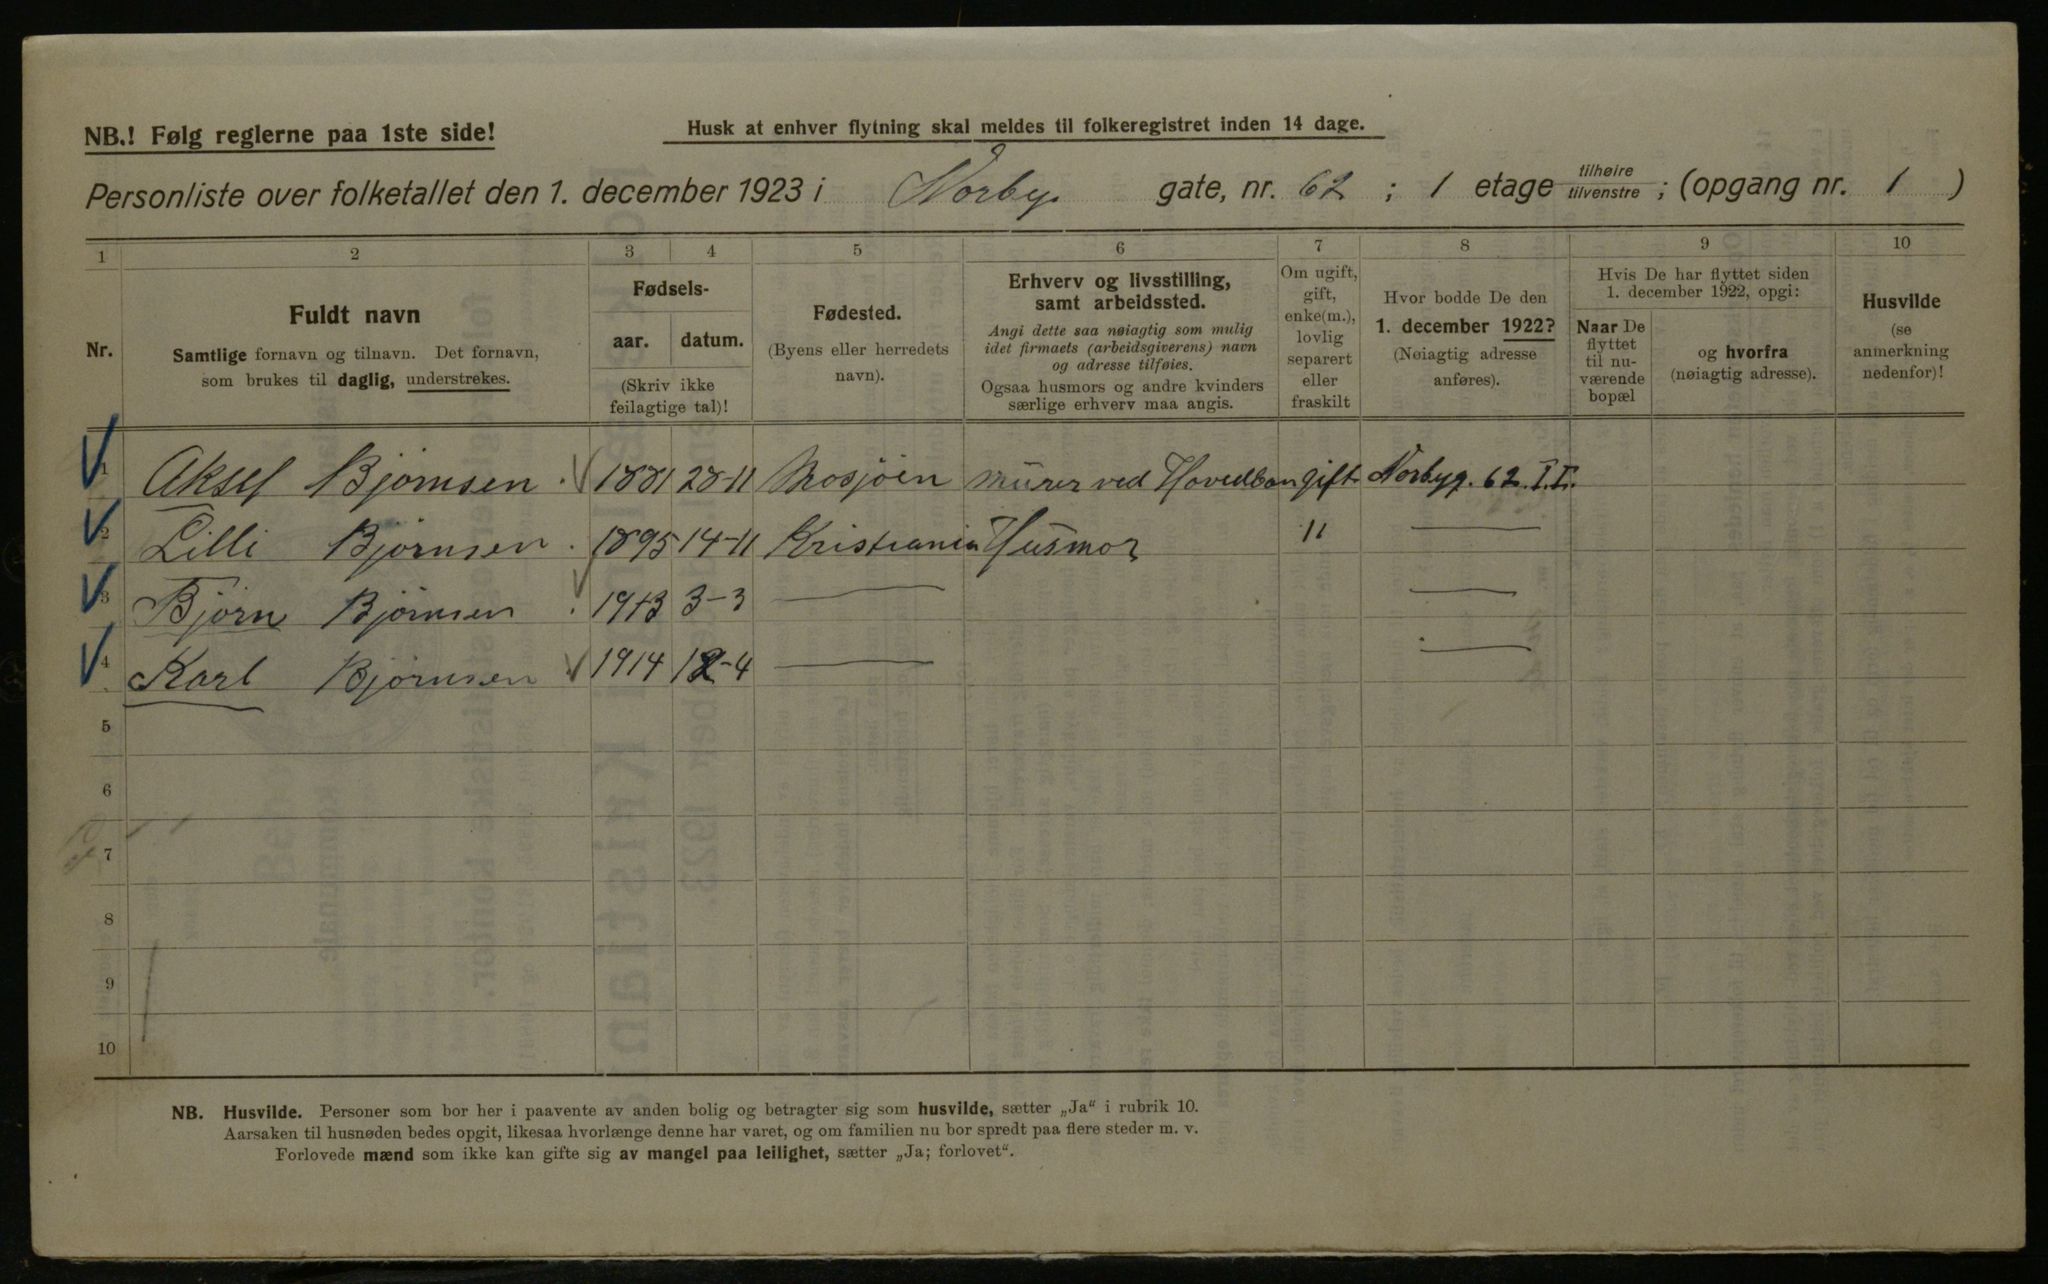 NB.! Følg reglerne paa 1ste side!
Husk at enhver flytning skal meldes til folkeregistret inden 14 dage.
Personliste over folketallet den 1. december 1923 i Norby gate, nr. 62 ; 1 etage tilhøire tilvenstre ; (opgang nr. 1 )
1 2 3 4 5 6 7 8 9 10
Nr.
Fuldt navn
Samtlige fornavn og tilnavn. Det fornavn,
som brukes til daglig, understrekes.
Fødsels-
aar. datum.
(Skriv ikke
feilagtige tal)!
Fødested.
(Byens eller herredets
navn).
Erhverv og livsstilling,
samt arbeidssted.
Angi dette saa nøiagtig som mulig
idet firmaets (arbeidsgiverens) navn
og adresse tilføies.
Ogsaa husmors og andre kvinders
særlige erhverv maa angis.
Om ugift,
gift,
enke(m.),
lovlig
separert
eller
fraskilt
Hvor bodde De den
1. december 1922?
(Nøiagtig adresse
anføres).
Hvis De har flyttet siden
1. december 1922, opgi:
Naar De
flyttet
til nu-
værende
bopæl
og hvorfra
(nøiagtig adresse).
Husvilde
(se
anmerkning
nedenfor)!
1 Aksel Bjørnsen 1881 28-11 Mosjøen murer ved Hovedban gift Norbyg. 62. I.I.
2 Lilli Bjørnsen 1895 14-11 Kristiania Husmor " —
3 Bjørn Bjørnsen 1913 3-3 — —
4 Karl Bjørnsen 1914 12-4 — —
5
6
7
8
9
10
NB. Husvilde. Personer som bor her i paavente av anden bolig og betragter sig som husvilde, sætter „Ja" i rubrik 10.
Aarsaken til husnøden bedes opgit, likesaa hvorlænge denne har varet, og om familien nu bor spredt paa flere steder m. v.
Forlovede mænd som ikke kan gifte sig av mangel paa leilighet, sætter „Ja; forlovet".